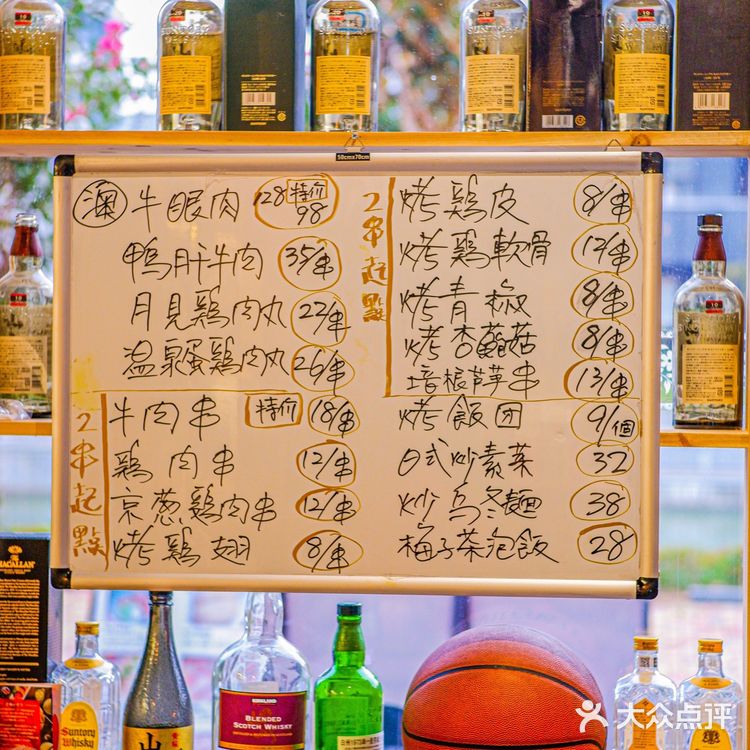 50cmx70cm
澳 牛眼肉 128 特价 98
鴨肝牛肉 35/串
月見鶏肉丸 22/串
温泉蛋鶏肉丸 26/串
2串起點
牛肉串 特价 18/串
鶏肉串 12/串
京葱鶏肉串 12/串
烤鶏翅 8/串
2串起點
烤鶏皮 8/串
烤鶏軟骨 12/串
烤青椒 8/串
烤杏鮑菇 8/串
培根芦笋串 13/串
烤飯団 9/個
日式炒素菜 32
炒乌冬麺 38
梅子茶泡飯 28
MACALLAN
Suntory
Whisky
山
KIRKLAND
BLENDED
SCOTCH WHISKY
大众点评